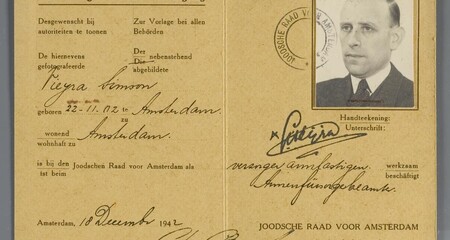 Desgewenscht bij
autoriteiten te toonen
Zur Vorlage bei allen
Behörden
De hiernevens
gefotografeerde
Der nebenstehend
Die abgebildete
Vieyra Simson
geboren 22-11.02 te Amsterdam
zu
wonend
wohnhaft zu Amsterdam.
is bij den Joodschen Raad voor Amsterdam als
ist beim
Amsterdam, 18 December 1942
JOODSCHE RAAD VOOR AMSTERDAM
Handteekening:
Unterschrift:
SVieyra
werkzaam
beschäftigt
Armenfürsorgebeamte.
JOODSCHE RAAD VOOR AMSTERDAM